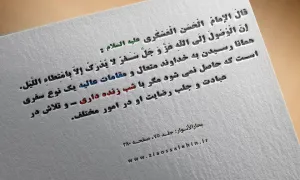 قالَ الإمامُ الْحَسَنُ الْعَسْكَری علیه السلام :
إنَّ الْوُصُولَ إلَی اللّهِ عَزَّ وَ جَلَّ سَفَرٌ لا یُدْرَکُ إلاّ بِامْتِطاءِ اللَّیْلِ.
همانا رسیدن به خداوند متعال و مقامات عالیه یک نوع سفری
است که حاصل نمی شود مگر با شب زنده داری ــ و تلاش در
عبادت و جلب رضایت او در امور مختلف.
بحارالأنوار: جلد ۷۵، صفحه ۳۸۰
www.ziaossalehin.ir